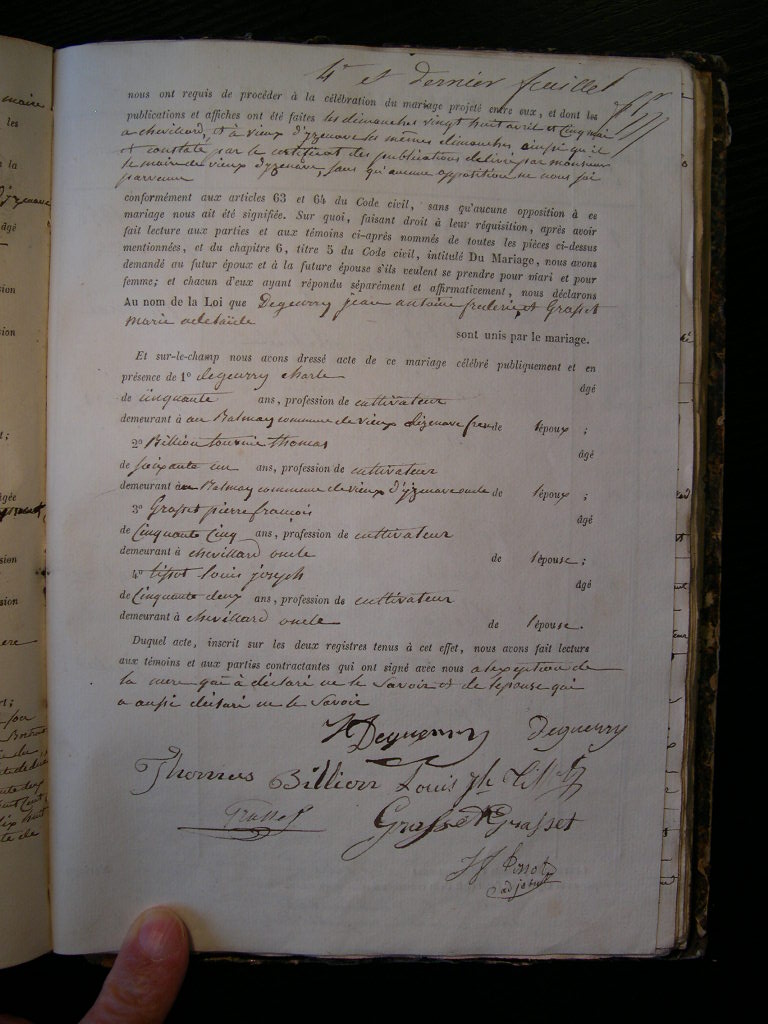 4e et dernier feuillet
nous ont requis de procéder à la célébration du mariage projeté entre eux, et dont les
publications et affiches ont été faites les dimanches vingt huit avril et cinq mai
a chevillard, et à vieux d'yzenave les mêmes dimanches ainsi qu'il
est constaté par le certificat des publications delivré par monsieur
le maire de vieux dyzenave, sans qu'aucune opposition ne nous soi
parvenue
conformément aux articles 63 et 64 du Code civil, sans qu'aucune opposition à ce
mariage nous ait été signifiée. Sur quoi, faisant droit à leur réquisition, après avoir
fait lecture aux parties et aux témoins ci-après nommés de toutes les pièces ci-dessus
mentionnées, et du chapitre 6, titre 5 du Code civil, intitulé Du Mariage, nous avons
demandé au futur époux et à la future épouse s'ils veulent se prendre pour mari et pour
femme; et chacun d'eux ayant répondu séparément et affirmativement, nous déclarons
Au nom de la Loi que Deguerry jean antoine frederic et Grasset
marie adelaïde
sont unis par le mariage.
Et sur-le-champ nous avons dressé acte de ce mariage célébré publiquement et en
présence de 1o deguerry charle âgé
de cinquante ans, profession de cultivateur
demeurant à au Balmay commune de vieux dizenave de l'époux ;
2o Billion thomas âgé
de soixante un ans, profession de cultivateur
demeurant à au Balmay commune de vieux d'yzenave oncle de l'époux ;
3o Grasset pierre françois âgé
de Cinquante Cinq ans, profession de cultivateur
demeurant à chevillard oncle de l'épouse ;
4o tissot louis joseph âgé
de Cinquante deux ans, profession de cultivateur
demeurant à chevillard oncle de l'épouse.
Duquel acte, inscrit sur les deux registres tenus à cet effet, nous avons fait lecture
aux témoins et aux parties contractantes qui ont signé avec nous a lexception de
la mere qui à déclaré ne le Savoir et de lépouse qui
a aussi déclaré ne le Savoir
Deguerry Deguerry
Thomas Billion Louis jh Tissot
Grasset Grasset Grasset
Tissot
adjoint